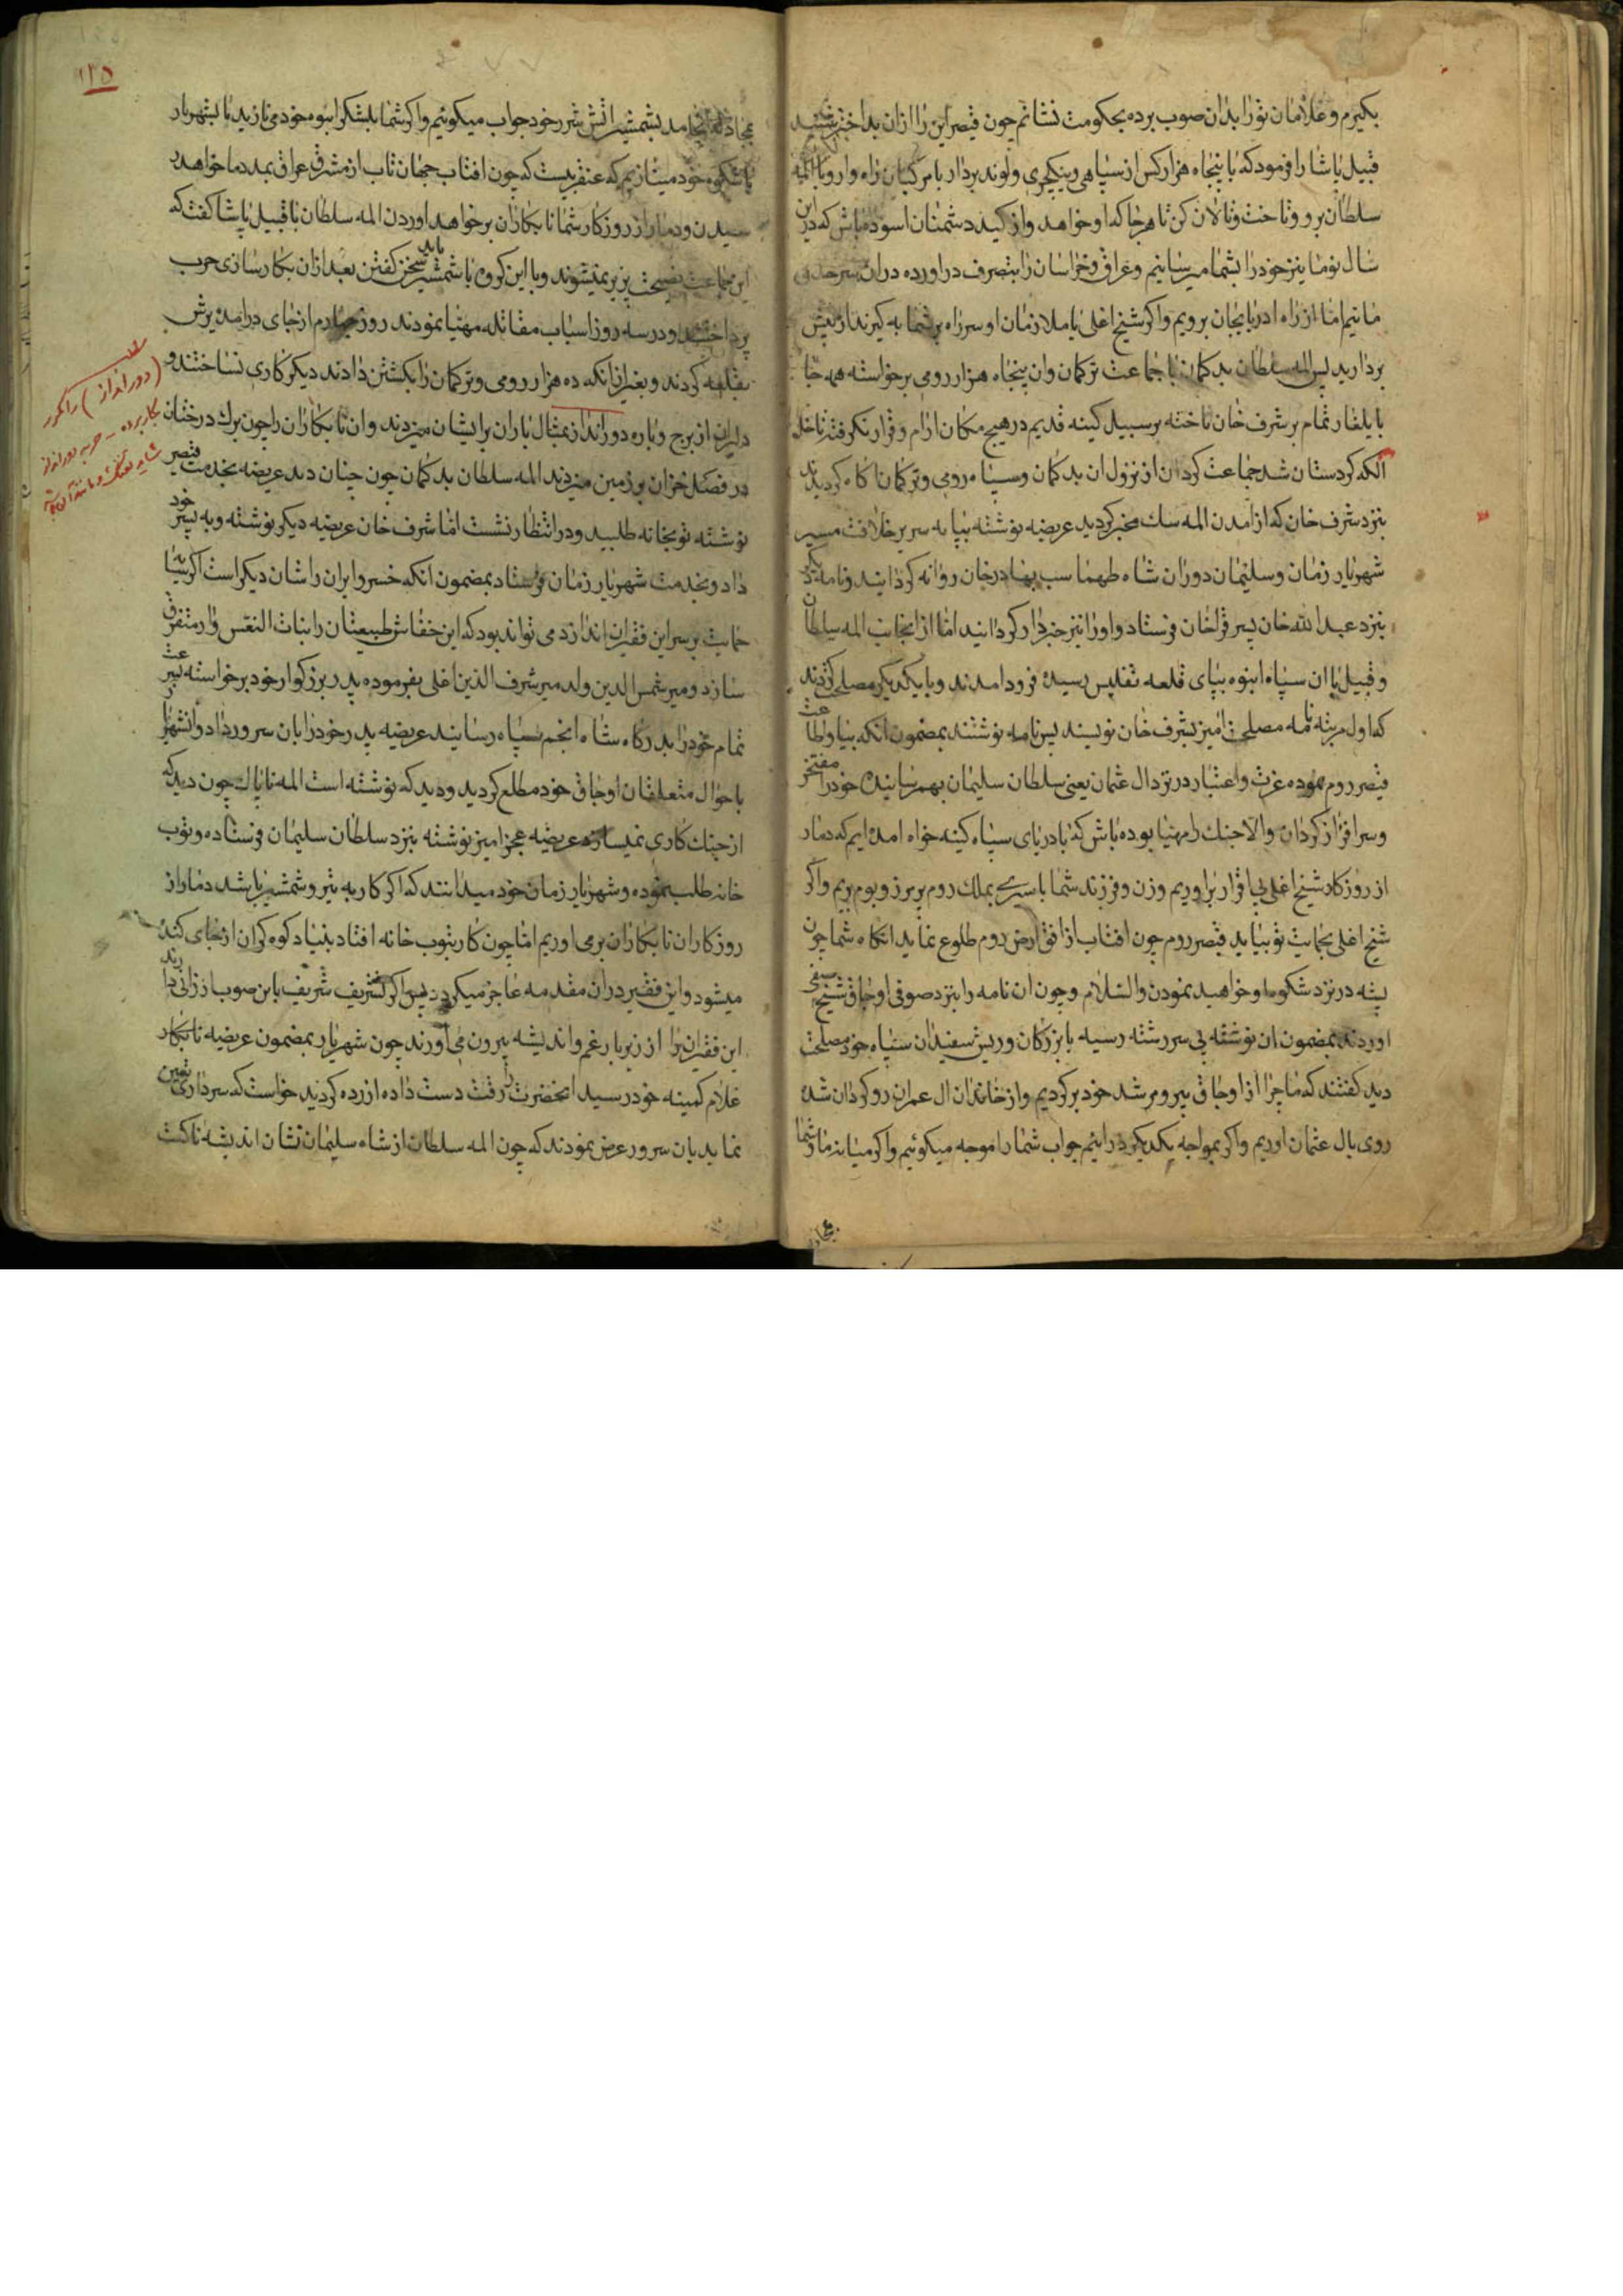 بکیرم و غلامان تو را بدان صوب برده بحکومت نشانم چون قیصر این را از ان بداختر شنید
قبیل پاشا را فرمود که با پنجاه هزار کس از سپاهی و ینکچری و لوند بردار با مرکبان راه وار و با المه
سلطان برو و تاخت و تالان کن تا هرجا که او خواهد و از کید دشمنان اسوده باش که در این
سال تو ما نیز خود را بشما میرسانیم و عراق و خراسان را بتصرف دراورده در ان سرحد
مانیم اما از راه ادربایجان برویم و اکر شیخ اغلی با ملازمان او سر راه بر شما به کیرند از پیش
بردارید پس المه سلطان بدکمان با جماعت ترکمان و ان پنجاه هزار رومی برخواسته همه جا
بایلغار تمام بر شرف خان تاخته بر سبیل کینه قدیم در هیچ مکان ارام و قرار نکرفته تا داخل
الکه کردستان شد جماعت کردان از نزول ان بدکمان و سپاه رومی و ترکمان اکاه کردیدند
بنزد شرف خان که از امدن المه سک مخبر کردید عریضه نوشته بپایه سریر خلافت مسیر
شهریار زمان و سلیمان دوران شاه طهماسب بهادرخان روانه کردانیدند و نامه دیکر
بنزد عبدالله خان پسر قراخان فرستاد و او را نیز خبردار کردانید اما از انجانب المه سلطان
و قبیل پا ان سپاه انبوه بپای قلعه تفلیس رسیده فرود امدند و با یکدیکر مصلحت کردند
که اول مرتبه نامه مصلحت امیز بشرف خان نویسند پس نامه نوشتند بمضمون انکه بیا و اطاعت
قیصر روم نموده عزت و اعتبار در نزد ال عثمان یعنی سلطان سلیمان بهم رسانیده خود را مفتخر
و سرافراز کردان والا جنک را مهیا بوده باش که با دریای سپاه کینه خواه امده ایم که دمار
از روزکار شیخ اغلی بی اقرار براوریم و زن و فرزند شما باسیری بملک روم بریم و اکر
شیخ اغلی بحمایت تو بیاید قیصر روم چون افتاب از افق ارض روم طلوع نماید انکاه شما چون
پشه در نزد شکوه ما خواهید نمودن والسلام و چون ان نامه را بنزد صوفی اوجاق شیخ صفی
اوردند بمضمون ان نوشته بی سررشته رسیه با بزرکان و ریش سفیدان سپاه خود مصلحت
دید کفتند که ما چرا از اوجاق پیر و مرشد خود برکردیم و از خاندان ال عمران روکردان شده
روی بال عثمان اوریم و اکر بمواجه یکدیکر درائیم جواب شما را موجه میکوئیم و اکر میانه ما و شما
بمجادله
بمجادله انجامد بشمشیر اتش شرر خود جواب میکوئیم و اکر شما بلشکر انبوه خود می نازید ما بشهریار
باشکوه خود مینازیم که عنقریبست که چون افتاب جهان تاب از مشرق عراق بمدد ما خواهد
رسیدن و دمار از روزکار شما نابکاران برخواهد اوردن المه سلطان با قبیل پاشا کفت که
این جماعت نصیحت پزیر نمیشوند و با این کروه با شمشیر باید سخن کفتن بعد از ان بکارسازی حرب
پرداختند و در سه روز اسباب مقاتله مهیا نمودند روز چهارم از جای درامده یرش
بقلعه کردند و بغیر از انکه ده هزار رومی و ترکمان را بکشتن دادند دیکر کاری نساختند و
دلیران از برج و باره دورانداز بمثال باران برایشان میزدند و ان نابکاران را چون برک درختان
در فصل خزان بر زمین میزدند المه سلطان بدکمان چون چنان دید عریضه بخدمت قیصر
نوشته توبخانه طلبید و در انتظار نشست اما شرف خان عریضه دیکر نوشته و به پسر خود
داد و بخدمت شهریار زمان فرستاد بمضمون انکه خسروا ایران را شان دیکر است اکر سایه
حمایت بر سر این فقیران اندازد می تواند بود که این خفاش طبیعتان را بنات النعش وار متفرق
سازد و میر شمس الدین ولد میر شرف الدین اغلی بفرموده پدر بزرکوار خود برخواسته بسرعت
تمام خود را بدرکاه شاه انجم سپاه رسانید عریضه پدر خود را بان سرور داد و انشهریار
باحوال متعلقان اوجاق خود مطلع کردید و دید که نوشته است المه ناپاک چون دید که
از جنک کاری نمیسازد عریضه عجز امیز نوشته بنزد سلطان سلیمان فرستاده و توب
خانه طلب نموده و شهریار زمان خود میدانند که اکر کار به تیر و شمشیر باشد دمار از
روزکار ان نابکاران برمی اوریم اما چون کار بتوب خانه افتاد بنیاد کوه کران از جای کنده
میشود و این فقیر در ان مقدمه عاجز میکردد پس اکر تشریف شریف باین صوب ارزانی دارند
این فقیران را از زیر بار غم و اندیشه بیرون می اورند چون شهریار بمضمون عریضه نابکار
غلام کمینه خود رسید انحضرت را رقت دست داده ازرده کردید خواست که سرداری تعین
نماید بان سرور عرض نمودند که چون المه سلطان از شاه سلیمان نشان اندیشه ناکست
۱۳۵
(دورانداز) را مکرر
بکار برده - حربه دورانداز
شاید تفنک و مانند آن باشد